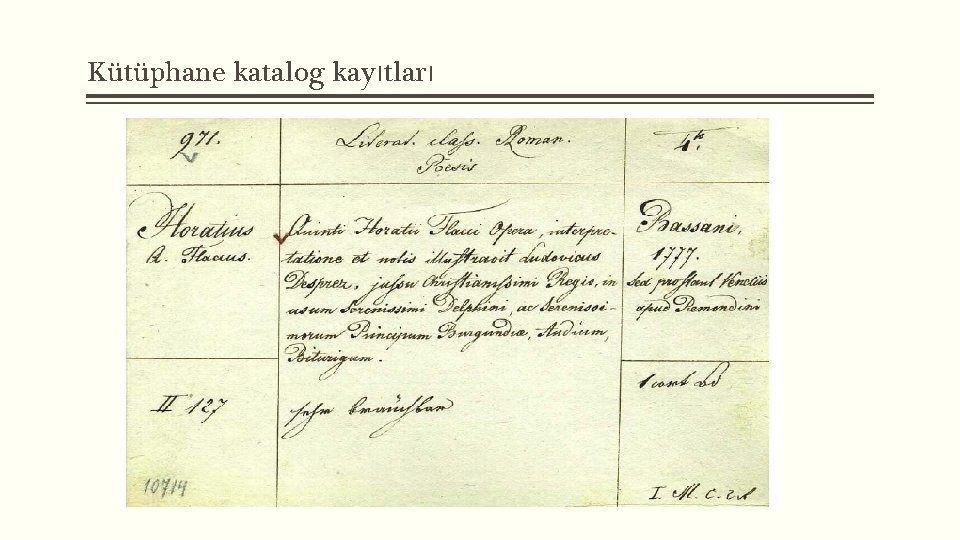 Kütüphane katalog kayıtları
971.
Literat. class. Roman.
Poesis
4to.
Horatius
Q. Flaccus.
Quinti Horatii Flacci Opera, interpre-
tatione et notis illustravit Ludovicus
Desprez, jussu Christianissimi Regis, in
usum Serenissimi Delphini, ac Serenissi-
morum Principum Burgundiæ, Andium,
Biturigum.
Bassani,
1777.
sed prostant Venetiis
apud Remondini
II 127
sehr brauchbar
10714
I. M. C.